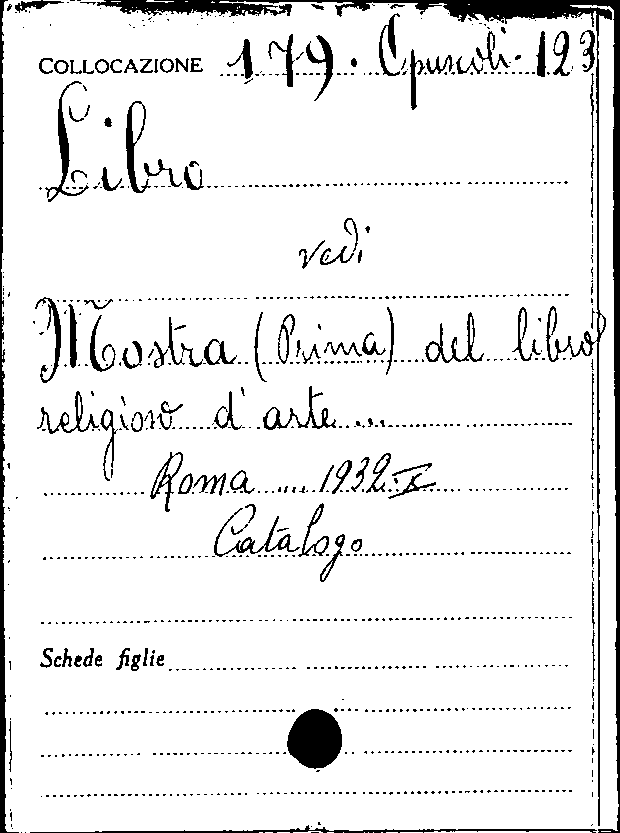 COLLOCAZIONE 179. Opuscoli. 123
Libro
vedi
Mostra (Prima) del libro
religioso d'arte...
Roma .... 1932. X
Catalogo
Schede figlie